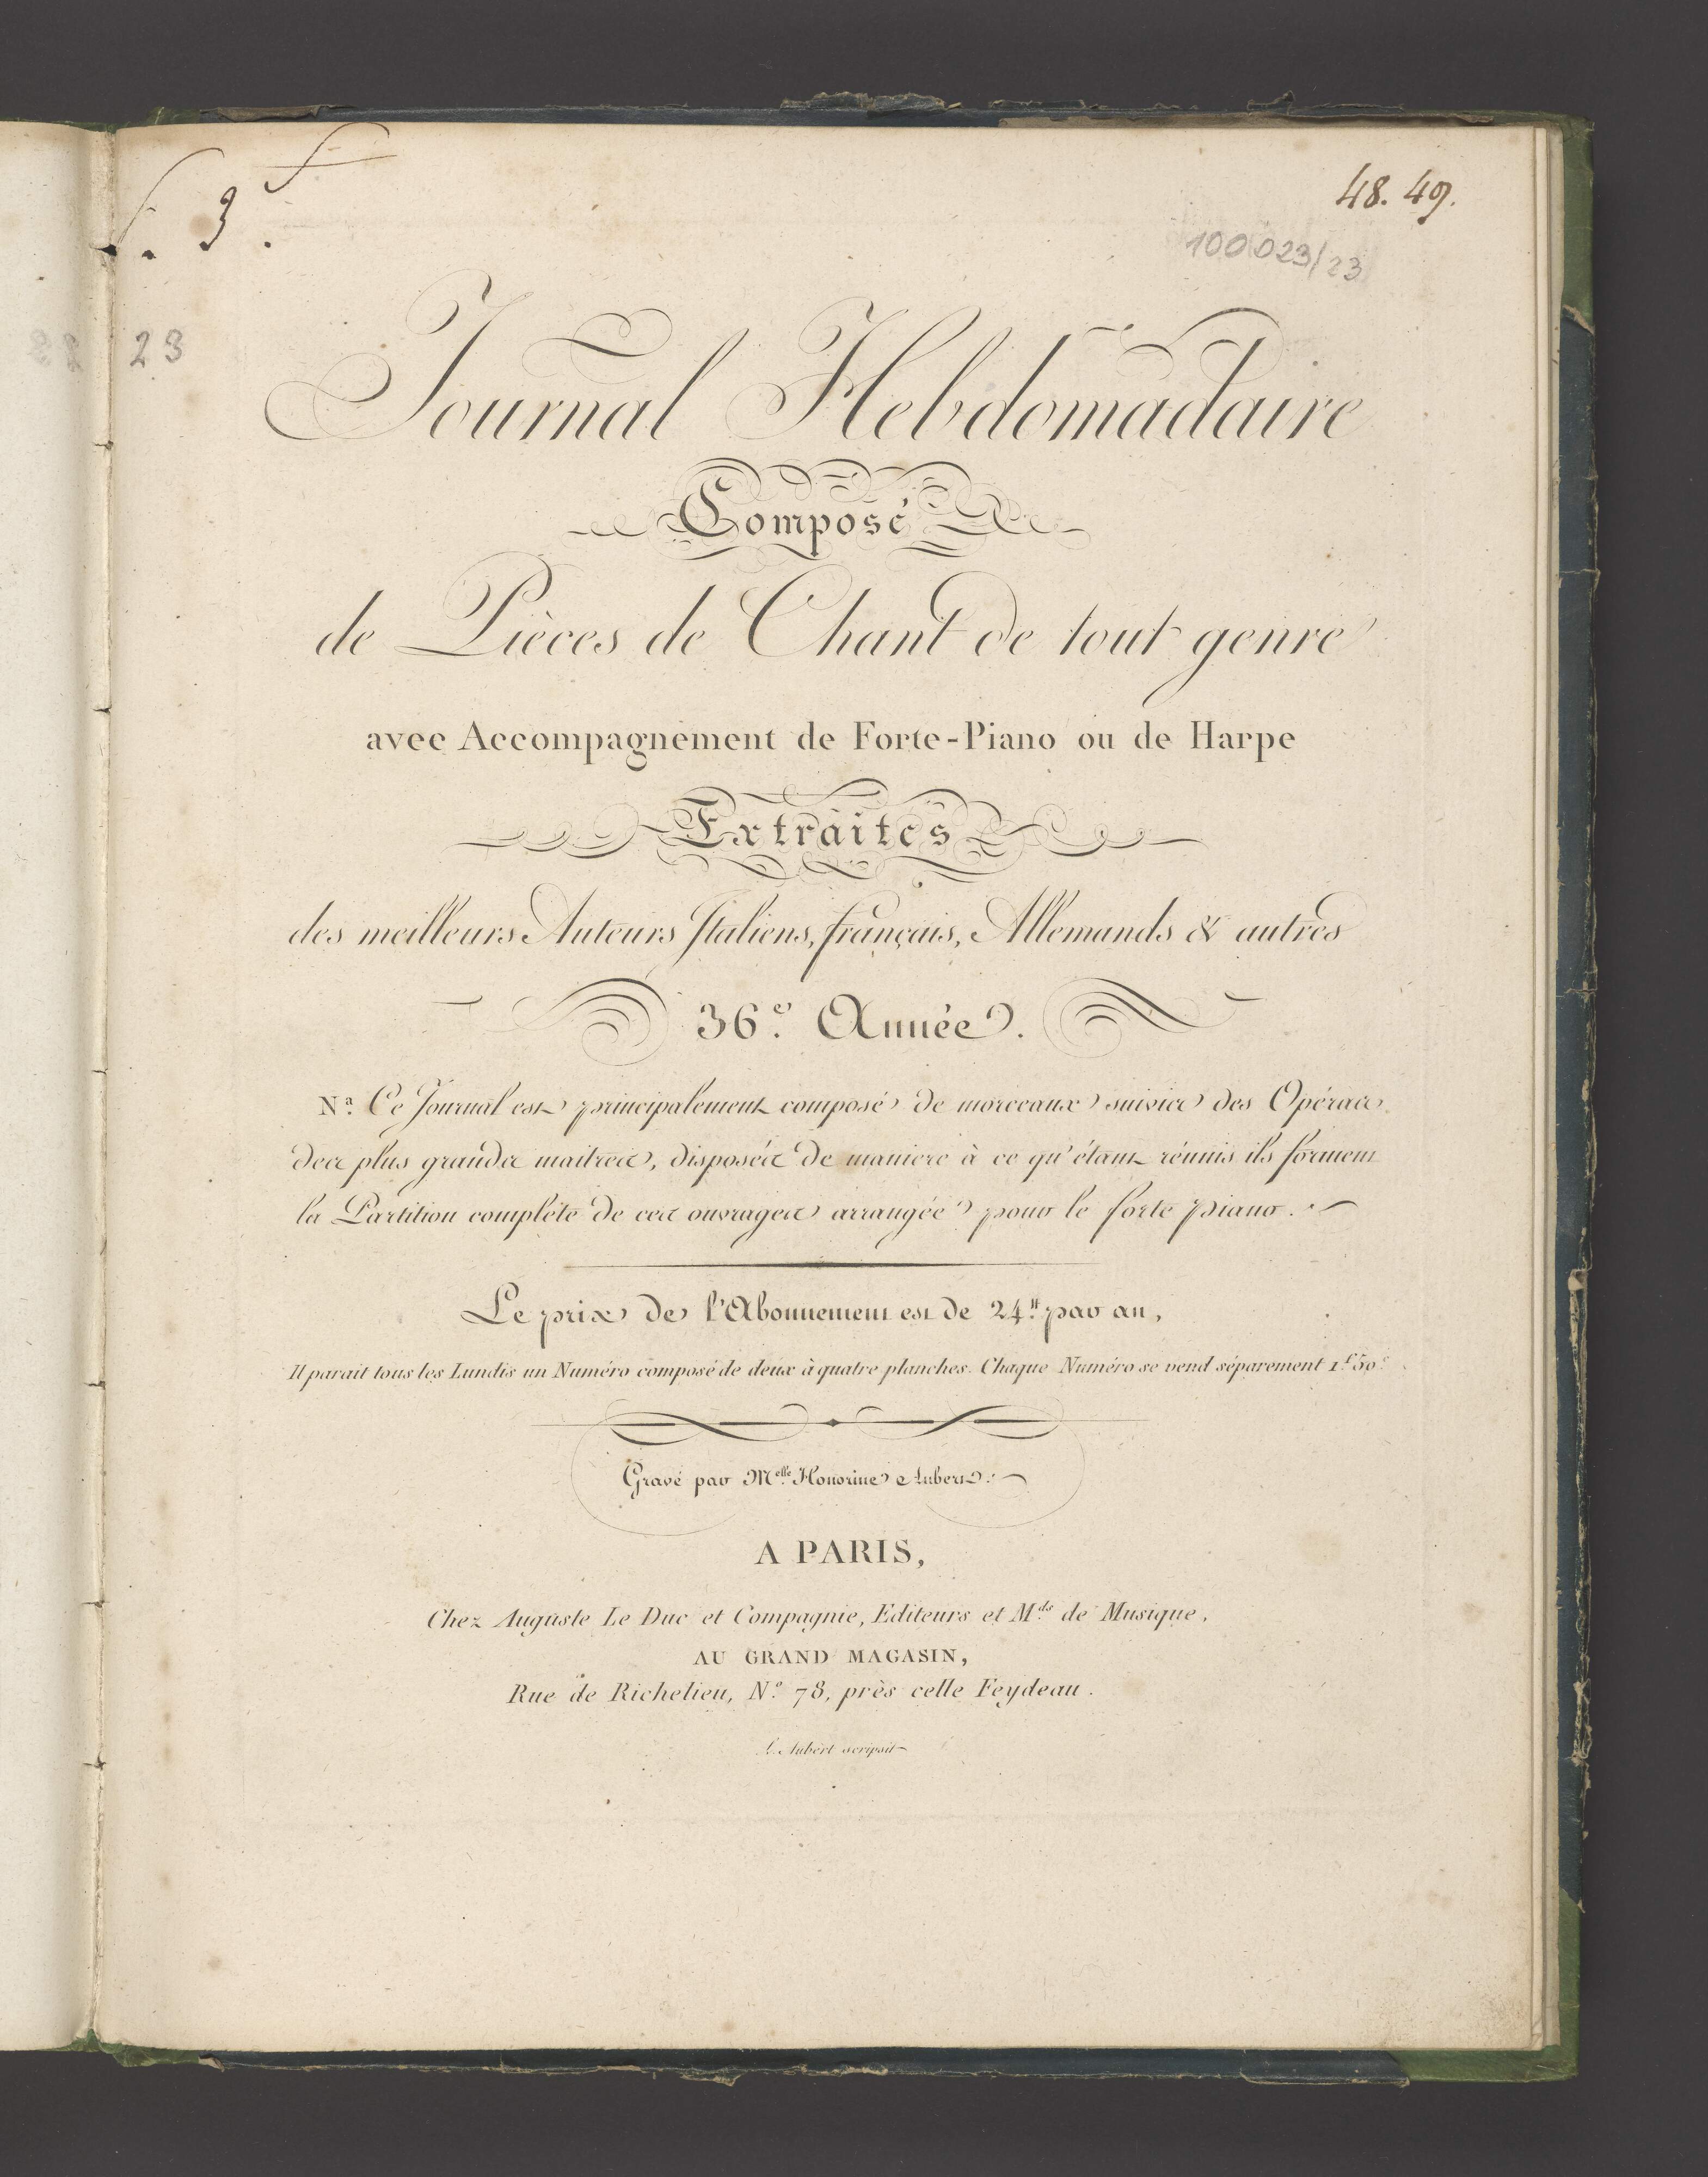 f. 3 f.
48. 49.
100023/23
23
Journal Hebdomadaire
Composé
de Pièces de Chant de tout genre
avec Accompagnement de Forte-Piano ou de Harpe
Extraites
des meilleurs Auteurs Italiens, français, Allemands & autres
36.e Année.
Na. Ce Journal est principalement composé de morceaux suivis des Opéras
des plus grands maitres, disposés de maniere à ce qu'étant réunis ils forment
la Partition complète de ces ouvrages arrangée pour le forte piano.
Le prix de l'Abonnement est de 24.# par an,
Il parait tous les Lundis un Numéro composé de deux à quatre planches. Chaque Numéro se vend séparement 1.f 50.c
Gravé par Melle. Honorine Aubert.
A PARIS,
Chez Auguste Le Duc et Compagnie, Editeurs et M.ds de Musique,
AU GRAND MAGASIN,
Rue de Richelieu, N.o 78, près celle Feydeau.
Aubert scripsit